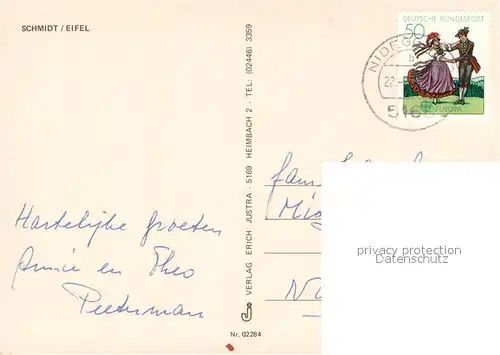 SCHMIDT / EIFEL
DEUTSCHE BUNDESPOST
50
NIDEG
22.
516
EUROPA
VERLAG ERICH JUSTRA - 5169 HEIMBACH 2 - TEL: (02446) 3359
Fam.
Hartelijke groeten
Annie en Theo
Peeterman
privacy protection
Datenschutz
Nr. 02284